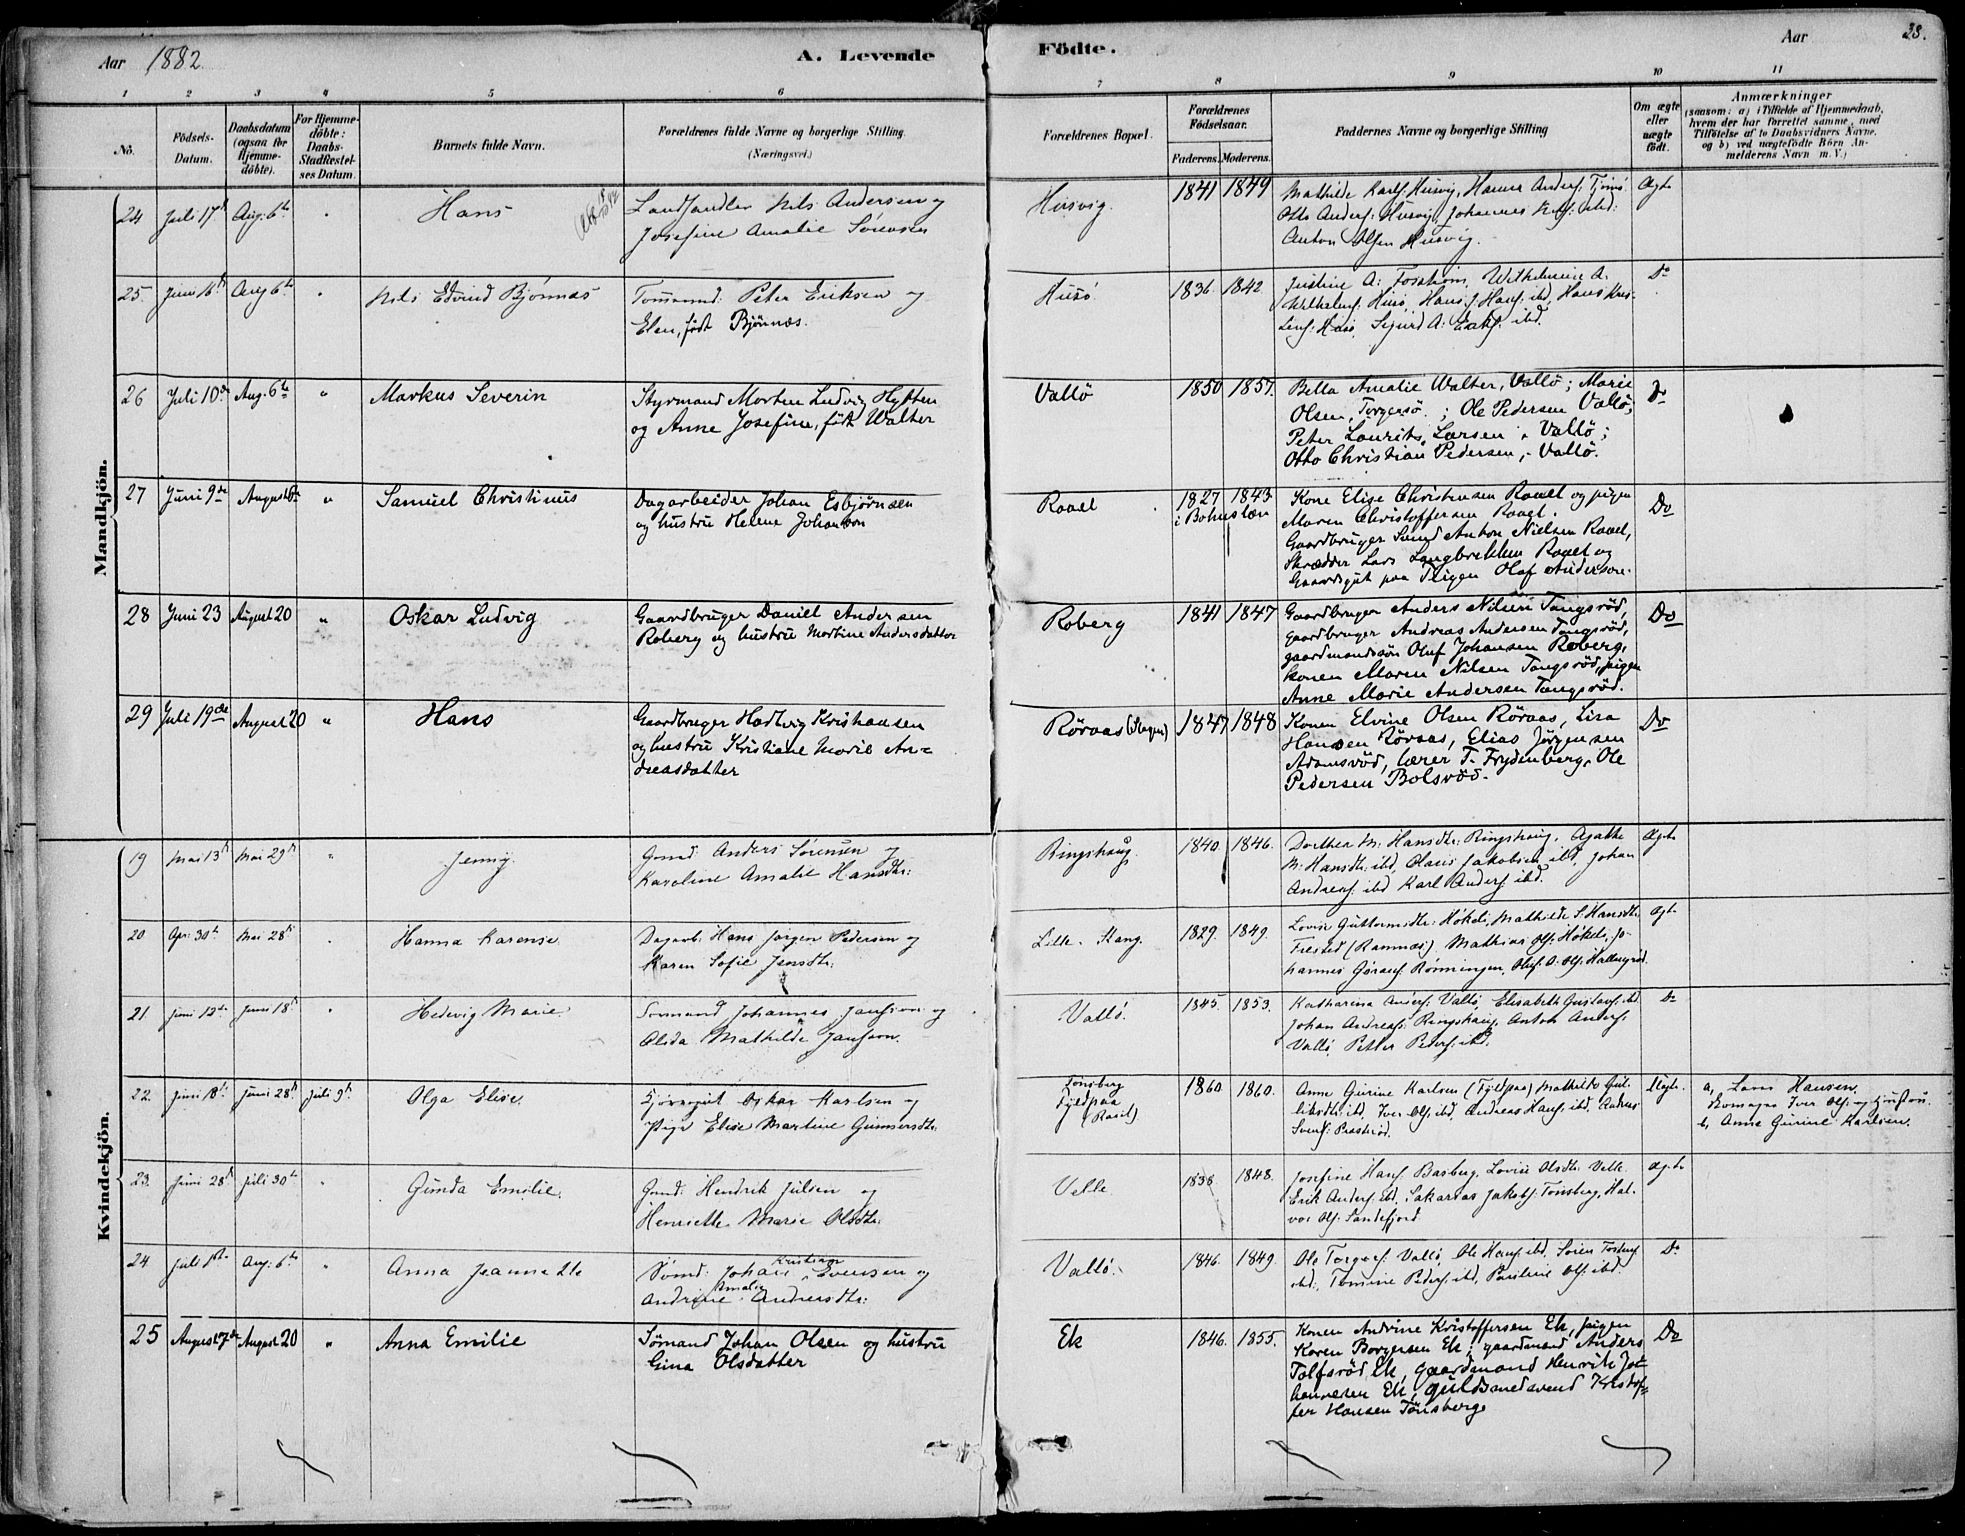 Aar 1882.
A. Levende
Födte.
Aar
28.
1 2 3 4 5 6 7 8 9 10 11
No.
Födsels-Datum.
Daabsdatum (ogsaa for Hjemme-döbte).
For Hjemme-döbte: Daabs-Stadfæstel-ses Datum.
Barnets fulde Navn.
Forældrenes fulde Navne og borgerlige Stilling.
(Næringsvei.)
Forældrenes Bopæl.
Forældrenes Fødselsaar.
Faderens. Moderens.
Faddernes Navne og borgerlige Stilling
Om ægte eller uægte födt.
Anmærkninger
(saasom: a) i Tilfælde af Hjemmedaab,
hvem der har forrettet samme, med
Tilföielse af to Daabsvidners Navne,
og b) ved uægtefödte Börn An-
melderens Navn m. V.)
Mandkjön.
24 Juli 17de Aug. 6te " Hans
Landhandler Nils Andersen og
Josefine Amalie Sørensen
Husvig. 1841 1849
Mathilde Karls: Husvig, Hanna Anders: Tjømø
Otto Anders: Husvig, Johannes ibd:
Anton Olsen Husvig.
Ægte
25. Juni 16de Aug 6te " Nils Edvind Bjønnæs
Tømmermd: Peter Eriksen og
Elen, født Bjønnæs.
Husø 1836. 1842
Justine A: Fosstrøm, Wilhelmine A.
Wilhelms: Husø, Hans J. Hans: ibd, Hans Kris-
tens: Husø, Sigurd A: ibd.
Do
26 Juli 10de Aug. 6te " Markus Severin
Styrmand Morten Ludvig Hytten
og Anne Josefine, født Walter
Vallö 1850 1857.
Bella Amalie Walter, Vallö; Marie
Olsen, Torgersö.; Ole Pedersen Vallö;
Peter Laurits Larsen, Vallö;
Otto Christian Pedersen, Vallö.
Do
27 Juni 9de August 6te " Samuel Christinus
Dagarbeider Johan Esbjørnsen
og hustru Helene Johanson
Raael 1827 1843
i Bohuslæn
Kone Elise Christensen Raael og pigen
Maren Christoffersen Raael.
Gaardbruger Anton Nielsen Raael,
Skrædder Lars Langbrekken Raael og
Gaardsgut paa Olaf Anderson.
Do
28 Juni 23 August 20 " Oskar Ludvig
Gaardbruger Daniel Andersen
Roberg og hustru Martine Andersdatter
Roberg 1841 1847
Gaardbruger Anders Nilsen Tangsröd,
gaardbruger Andreas Andersen Tangsröd,
gaardmandssön Oluf Johansen Roberg,
konen Maren Nilsen Tangsröd, pigen
Anne Marie Andersen Tangsröd.
Do
29 Juli 19de August 20 " Hans
Gaardbruger Hartvig Kristiansen
og hustru Kristiane Marie An-
dreasdatter
Röraas (Slagen) 1847 1848
Konen Elvine Olsen Röraas, Lisa
Hansen Röraas, Elias Jörgensen
Adamsröd, lærer T. Frydenberg, Ole
Pedersen Bolsröd.
Do
Kvindekjön.
19 Mai 13de Mai 29de " Jenny.
Gmd Anders Sørensen og
Karoline Amalie Hansdtr:
Ringshaug. 1840 1846.
Dorthea M: Hansdtr: Ringshaug, Agathe
M: Hansdtr: ibd, Olaus Jakobsen ibd, Johan
Andreas: ibd Karl Anders: ibd.
Ægte
20 Apr: 30te Mai 28de " Hanna Karense.
Dagarb: Hans Jørgen Pedersen og
Karen Sofie Jensdtr:
Lille-Stang. 1829. 1849.
Lovise Guttormsdtr: Høkeli, Mathilde S. Hansdtr
(Ramnæs) Mathias Ols: Høkeli, Jo-
hannes Gøraus: Rønningen,
Ægte
21. Juni 12te Juni 18de " Hedevig Marie.
Sømand Johannes Janson og
Olida Mathilde Janson.
Vallö. 1845. 1853.
Katharina Anders: Vallö, Elisabeth Gustavs: ibd
Johan Andreas: Ringshaug, Anton Anders:
Vallö, Petter Peders: ibd.
Do
22. Juni 18de Juni 28de Juli 9de Olga Elise.
Oskar Karlsen og
Pige Elise Martine Gunnersdtr:
Tønsberg
Fjeldpaa
(Raael)
1860. 1860.
Anne Gurine Karlsen (Fjeldpaa) Mathilde Gul-
liksdtr: ibd, Iver Ols: ibd, Andreas Hans: ibd,
Svens: Presterød.
Uægte.
a, Lars Hansen
Iver Ols: og hustru.
b, Anne Gurine Karlsen.
23. Juni 28de Juli 30te " Gunda Emilie.
Gmd: Hendrik Julsen og
Henriette Marie Olsdtr:
Velle 1838. 1848.
Josefine Hans: Basberg, Lovise Olsdtr: Velle
Erik Anders: ibd, Sakarias Jakobs: Tønsberg, Hal-
vor Ols: Sandefjord
Ægte
24 Juli 1ste Aug: 6te " Anna Jeannette
Sømd: Johan Kristian Evensen og
Andrine Amalie Andersdtr:
Vallö. 1846. 1849.
Ole Torgers: Vallö, Ole Hans: ibd, Søren
ibd, Tomine Peders: ibd, Pauline Ols: ibd.
Do
25 August 7de August 20 " Anna Emilie
Sömand Johan Olsen og hustru
Gina Olsdatter
Ek 1846. 1855.
Konen Andrine Kristoffersen Ek, pigen
Karen Borgersen Ek, gaardmand Anders
Tolfsröd Ek, gaardmand Henrik Jo-
hannesen Ek, guldsmedsvend Kristof-
fer Hansen Tönsberg.
Do